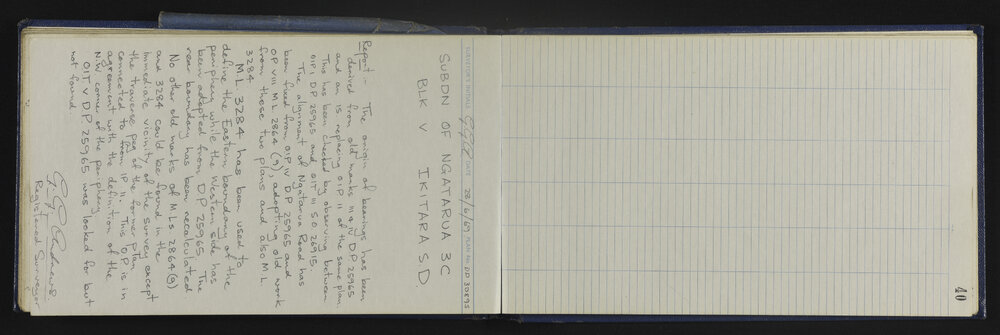 SURVEYOR'S INITIALS DATE 28/6/69 PLAN No. DP 30895
SUBDN OF NGATARUA 3C
BLK V IKITARA S.D.
Report:- The origin of bearings has been
derived from old marks III & IV D.P. 25965
and on is replacing O.I.P. II of the same plan.
This has been checked by observing between
O.I.P. I D.P. 25965 and O.I.T. III S.O. 26915.
The alignment of Ngatarua Road has
been fixed from O.I.P. IV D.P. 25965 and
O.P. VII M.L. 2864 (9), adopting old work
from these two plans and also M.L.
3284.
M.L. 3284 has been used to
define the Eastern boundary of the
periphery while the Western side has
been adopted from D.P. 25965. The
rear boundary has been recalculated
No other old marks of M.Ls 2864(9)
and 3284 could be found in the
immediate vicinity of the survey except
the traverse peg of the former plan
connected to from I.P. II. This O.P. is in
agreement with the definition of the
N.W. corner of the periphery.
O.I.T. V D.P. 25965 was looked for but
not found.
Registered Surveyor
40